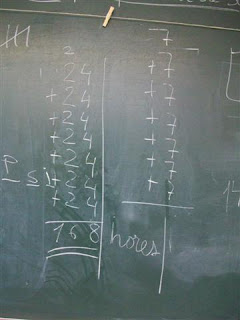 2 7
24 +7
+24 +7
+24 +7
+24 +7
+24 +7
P s i +24 +7
+24
168 hores